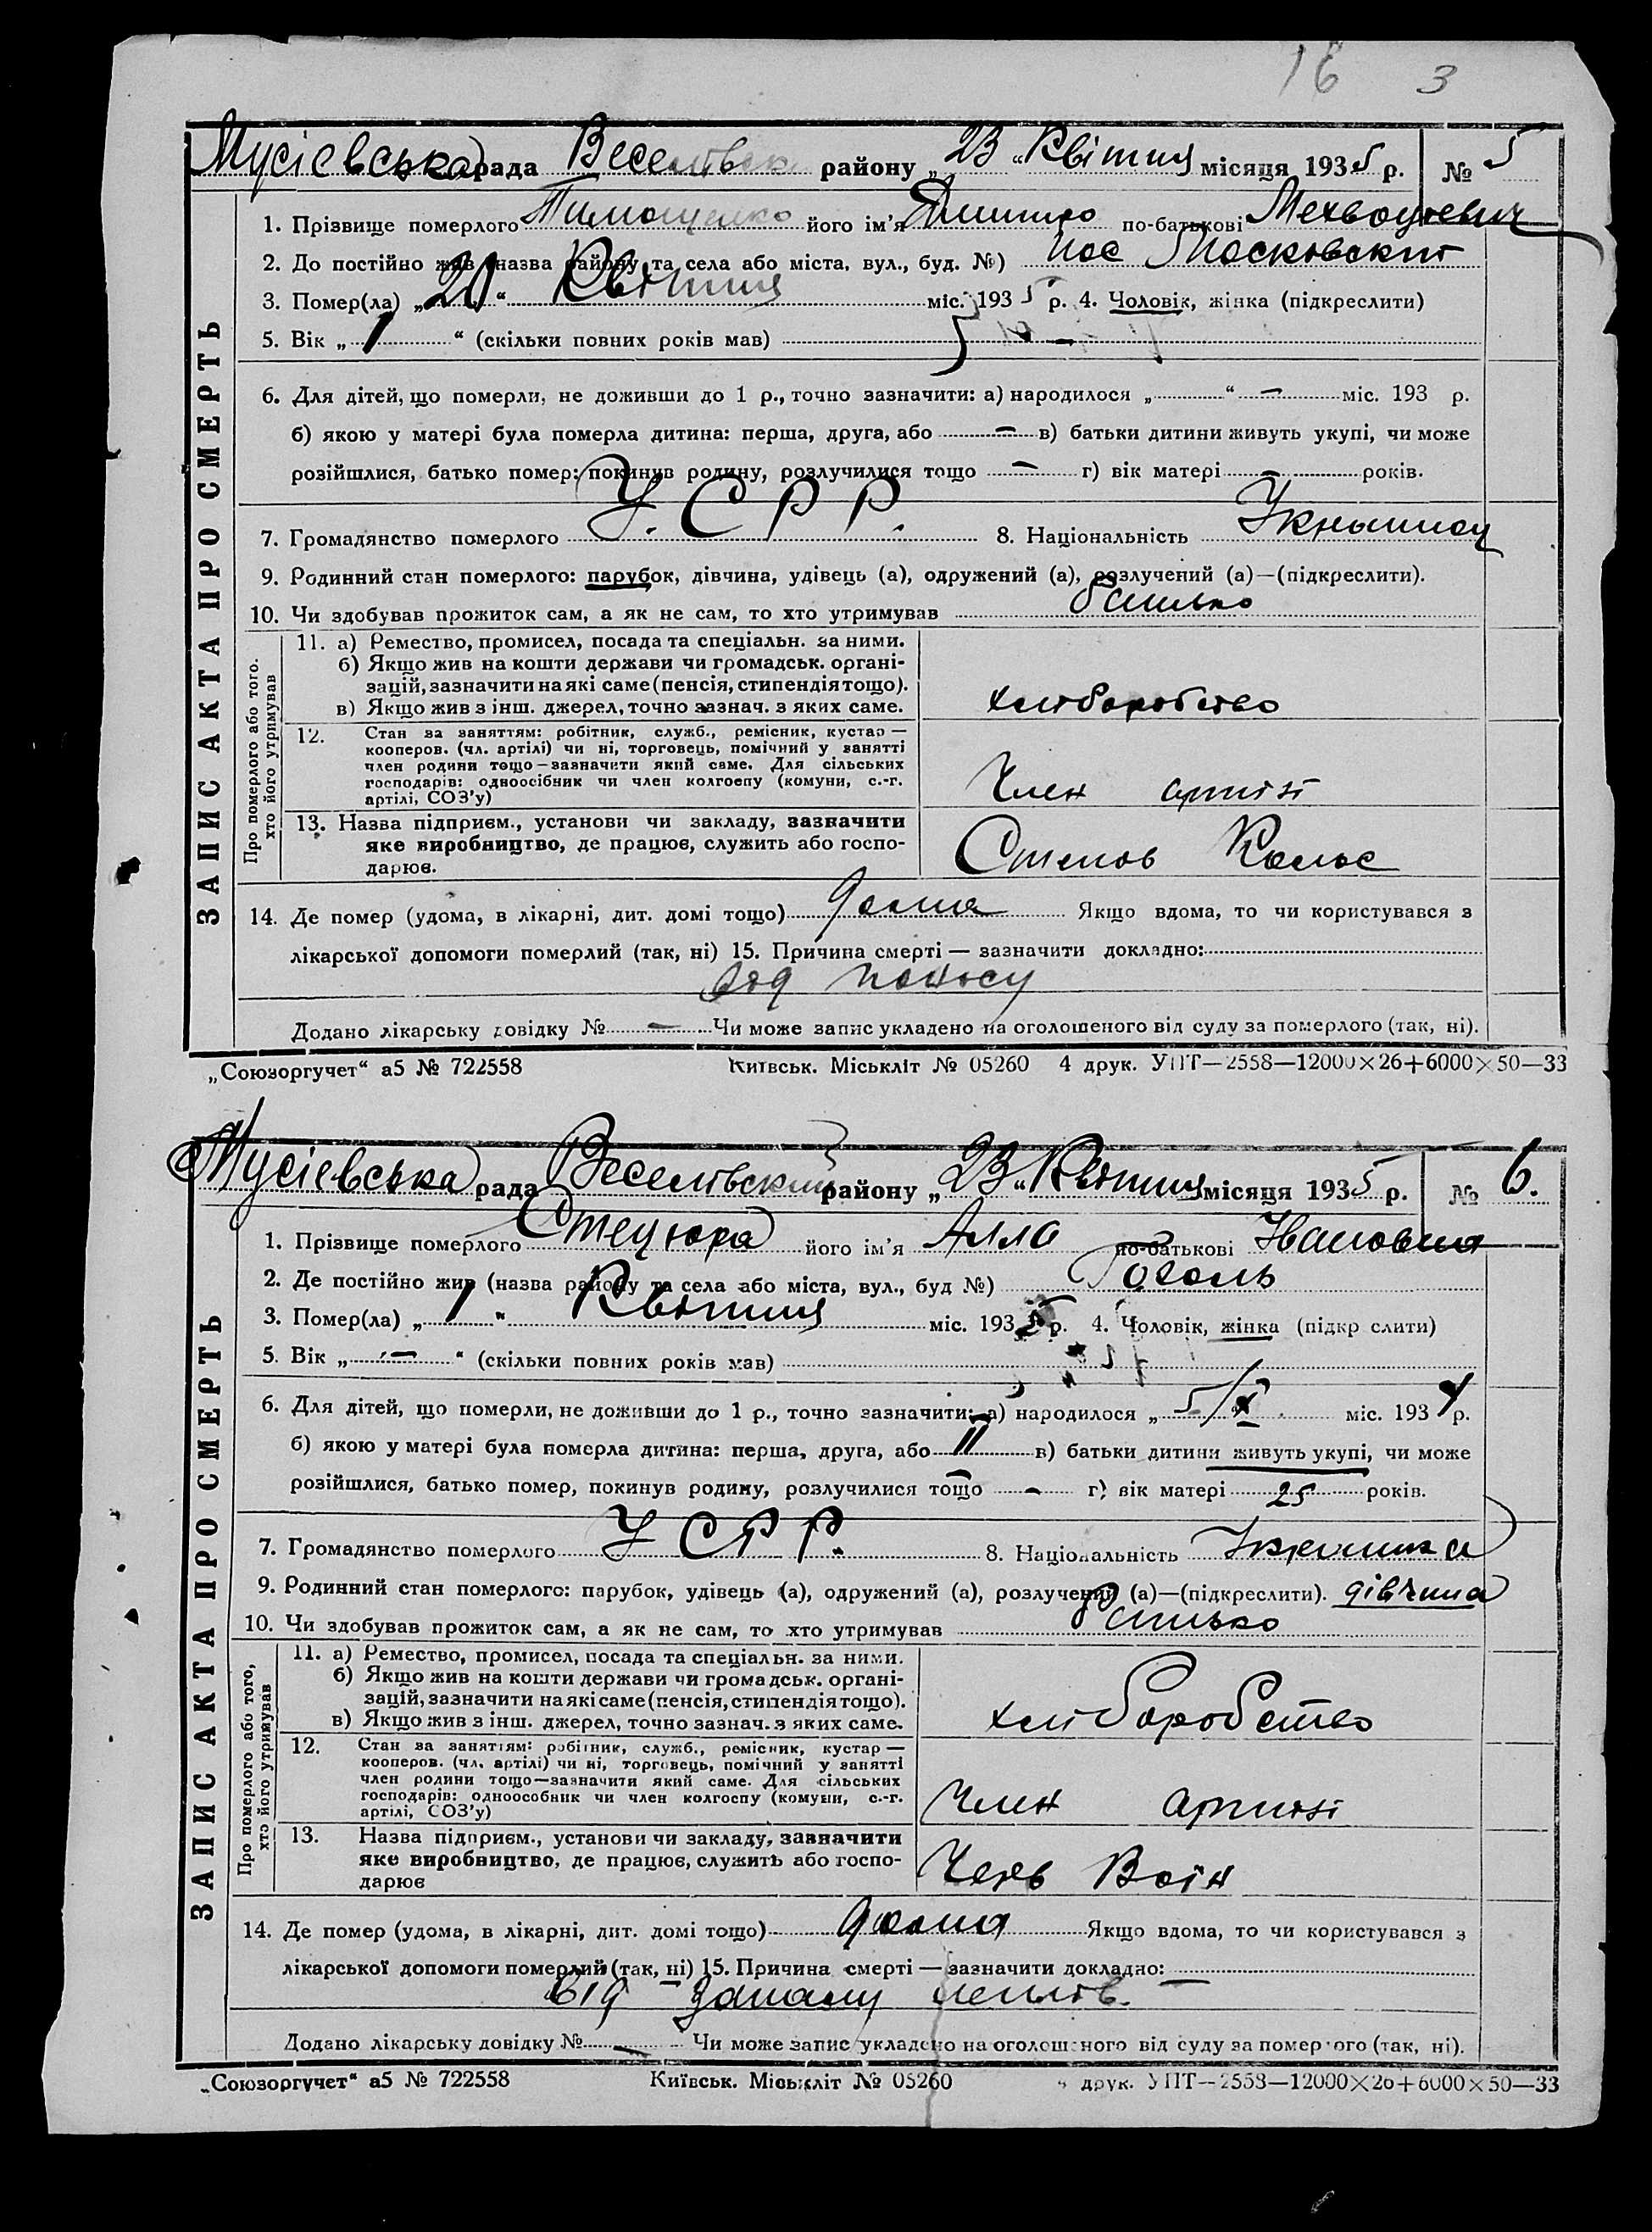 16 3
Мусієвська рада Веселівськ району „23“ Квітня місяця 1935 р. № 5
1. Прізвище померлого Тимощенко його ім'я Дмитро по-батькові
2. До постійно жив (назва району та села або міста, вул., буд. №) пос Московский
3. Помер(ла) „20“ Квітня міс. 1935 р. 4. Чоловік, жінка (підкреслити)
5. Вік „1“ (скільки повних років мав)
6. Для дітей, що померли, не доживши до 1 р., точно зазначити: а) народилося „ “ — міс. 193 р.
б) якою у матері була померла дитина: перша, друга, або — в) батьки дитини живуть укупі, чи може
розійшлися, батько помер, покинув родину, розлучилися тощо — г) вік матері — років.
7. Громадянство померлого У.С.Р.Р. 8. Національність
9. Родинний стан померлого: парубок, дівчина, удівець (а), одружений (а), розлучений (а)—(підкреслити).
10. Чи здобував прожиток сам, а як не сам, то хто утримував батько
ЗАПИС АКТА ПРО СМЕРТЬ
Про померлого або того.
хто його утримував
11. а) Ремество, промисел, посада та спеціальн. за ними.
б) Якщо жив на кошти держави чи громадськ. органі-
зацій, зазначити на які саме (пенсія, стипендія тощо).
в) Якщо жив з інш. джерел, точно зазнач. з яких саме.
хліборобство
12. Стан за заняттям: робітник, служб., ремісник, кустар —
кооперов. (чл. артілі) чи ні, торговець, помічний у занятті
член родини тощо—зазначити який саме. Для сільських
господарів: одноосібник чи член колгоспу (комуни, с.-г.
артілі, СОЗ'у)
Член артілі
13. Назва підприєм., установи чи закладу, зазначити
яке виробництво, де працює, служить або госпо-
дарює.
14. Де помер (удома, в лікарні, дит. домі тощо) дома Якщо вдома, то чи користувався з
лікарської допомоги померлий (так, ні) 15. Причина смерті — зазначити докладно:
від поносу
Додано лікарську довідку № — Чи може запис укладено на оголошеного від суду за померлого (так, ні).
„Союзоргучет“ а5 № 722558 Київськ. Міськліт № 05260 4 друк. УПТ—2558—12000×26+6000×50—33
Мусієвська рада Веселівський району „23“ Квітня місяця 1935 р. № 6.
1. Прізвище померлого Стецюра його ім'я Алла по-батькові Івановна
2. Де постійно жив (назва району та села або міста, вул., буд №) Гоголь
3. Помер(ла) „1“ Квітня міс. 1935 р. 4. Чоловік, жінка (підкр слити)
5. Вік „—“ (скільки повних років мав)
6. Для дітей, що померли, не доживши до 1 р., точно зазначити: а) народилося „5/X міс. 1934 р.
б) якою у матері була померла дитина: перша, друга, або II в) батьки дитини живуть укупі, чи може
розійшлися, батько помер, покинув родину, розлучилися тощо — г) вік матері 25 років.
7. Громадянство померлого УСРР. 8. Національність Українка
9. Родинний стан померлого: парубок, удівець (а), одружений (а), розлучений (а)—(підкреслити). дівчина
10. Чи здобував прожиток сам, а як не сам, то хто утримував батько
ЗАПИС АКТА ПРО СМЕРТЬ
Про померлого або того,
хто його утримував
11. а) Ремество, промисел, посада та спеціальн. за ними.
б) Якщо жив на кошти держави чи громадськ. органі-
зацій, зазначити на які саме (пенсія, стипендія тощо).
в) Якщо жив з інш. джерел, точно зазнач. з яких саме.
хліборобство
12. Стан за заняттям: робітник, служб., ремісник, кустар —
кооперов. (чл. артілі) чи ні, торговець, помічний у занятті
член родини тощо—зазначити який саме. Для сільських
господарів: одноособник чи член колгоспу (комуни, с.-г.
артілі, СОЗ'у)
Член артілі
13. Назва підприєм., установи чи закладу, зазначити
яке виробництво, де працює, служить або госпо-
дарює
Черв Воїн
14. Де помер (удома, в лікарні, дит. домі тощо) дома Якщо вдома, то чи користувався з
лікарської допомоги померлий (так, ні) 15. Причина смерті — зазначити докладно: —
від запалу легенів.
Додано лікарську довідку № — Чи може запис укладено на оголошеного від суду за померлого (так, ні).
„Союзоргучет“ а5 № 722558 Київськ. Міськліт № 05260 4 друк. УПТ—2558—12000×26+6000×50—33